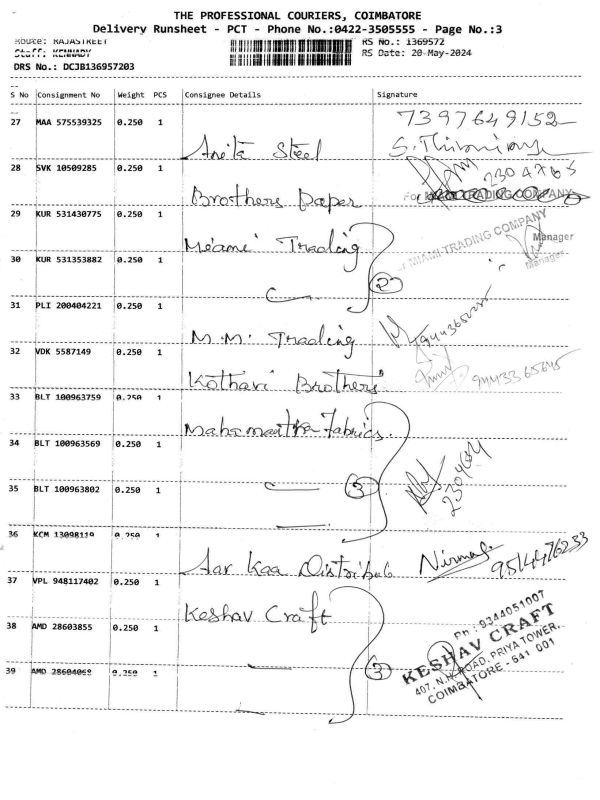 THE PROFESSIONAL COURIERS, COIMBATORE
Delivery Runsheet - PCT - Phone No.:0422-3505555 - Page No.:3
Route: RAJASTREET RS No.: 1369572
Staff: KENNADY RS Date: 20-May-2024
DRS No.: DCJB136957203
S No Consignment No Weight PCS Consignee Details Signature
27 MAA 575539325 0.250 1 Anita Steel 7397649152
28 SVK 10509285 0.250 1 Brothers Paper 2304765
For MIAMI TRADING COMPANY
29 KUR 531430775 0.250 1 Miami Trading
For MIAMI TRADING COMPANY
Manager
Manager
30 KUR 531353882 0.250 1 2
31 PLI 200404221 0.250 1 M.M. Trading
32 VDK 5587149 0.250 1 Kothari Brothers 9443365645
33 BLT 100963759 0.250 1 Mahamantra Fabrics
34 BLT 100963569 0.250 1
35 BLT 100963802 0.250 1 3
36 KCM 13098119 0.250 1 Aar Kaa Distribut 9514476233
37 VPL 948117402 0.250 1 Keshav Craft
Ph : 9344051007
KESHAV CRAFT
407, N.H. ROAD, PRIYA TOWER,
COIMBATORE - 641 001
38 AMD 28603855 0.250 1
39 AMD 28604068 0.250 1 3